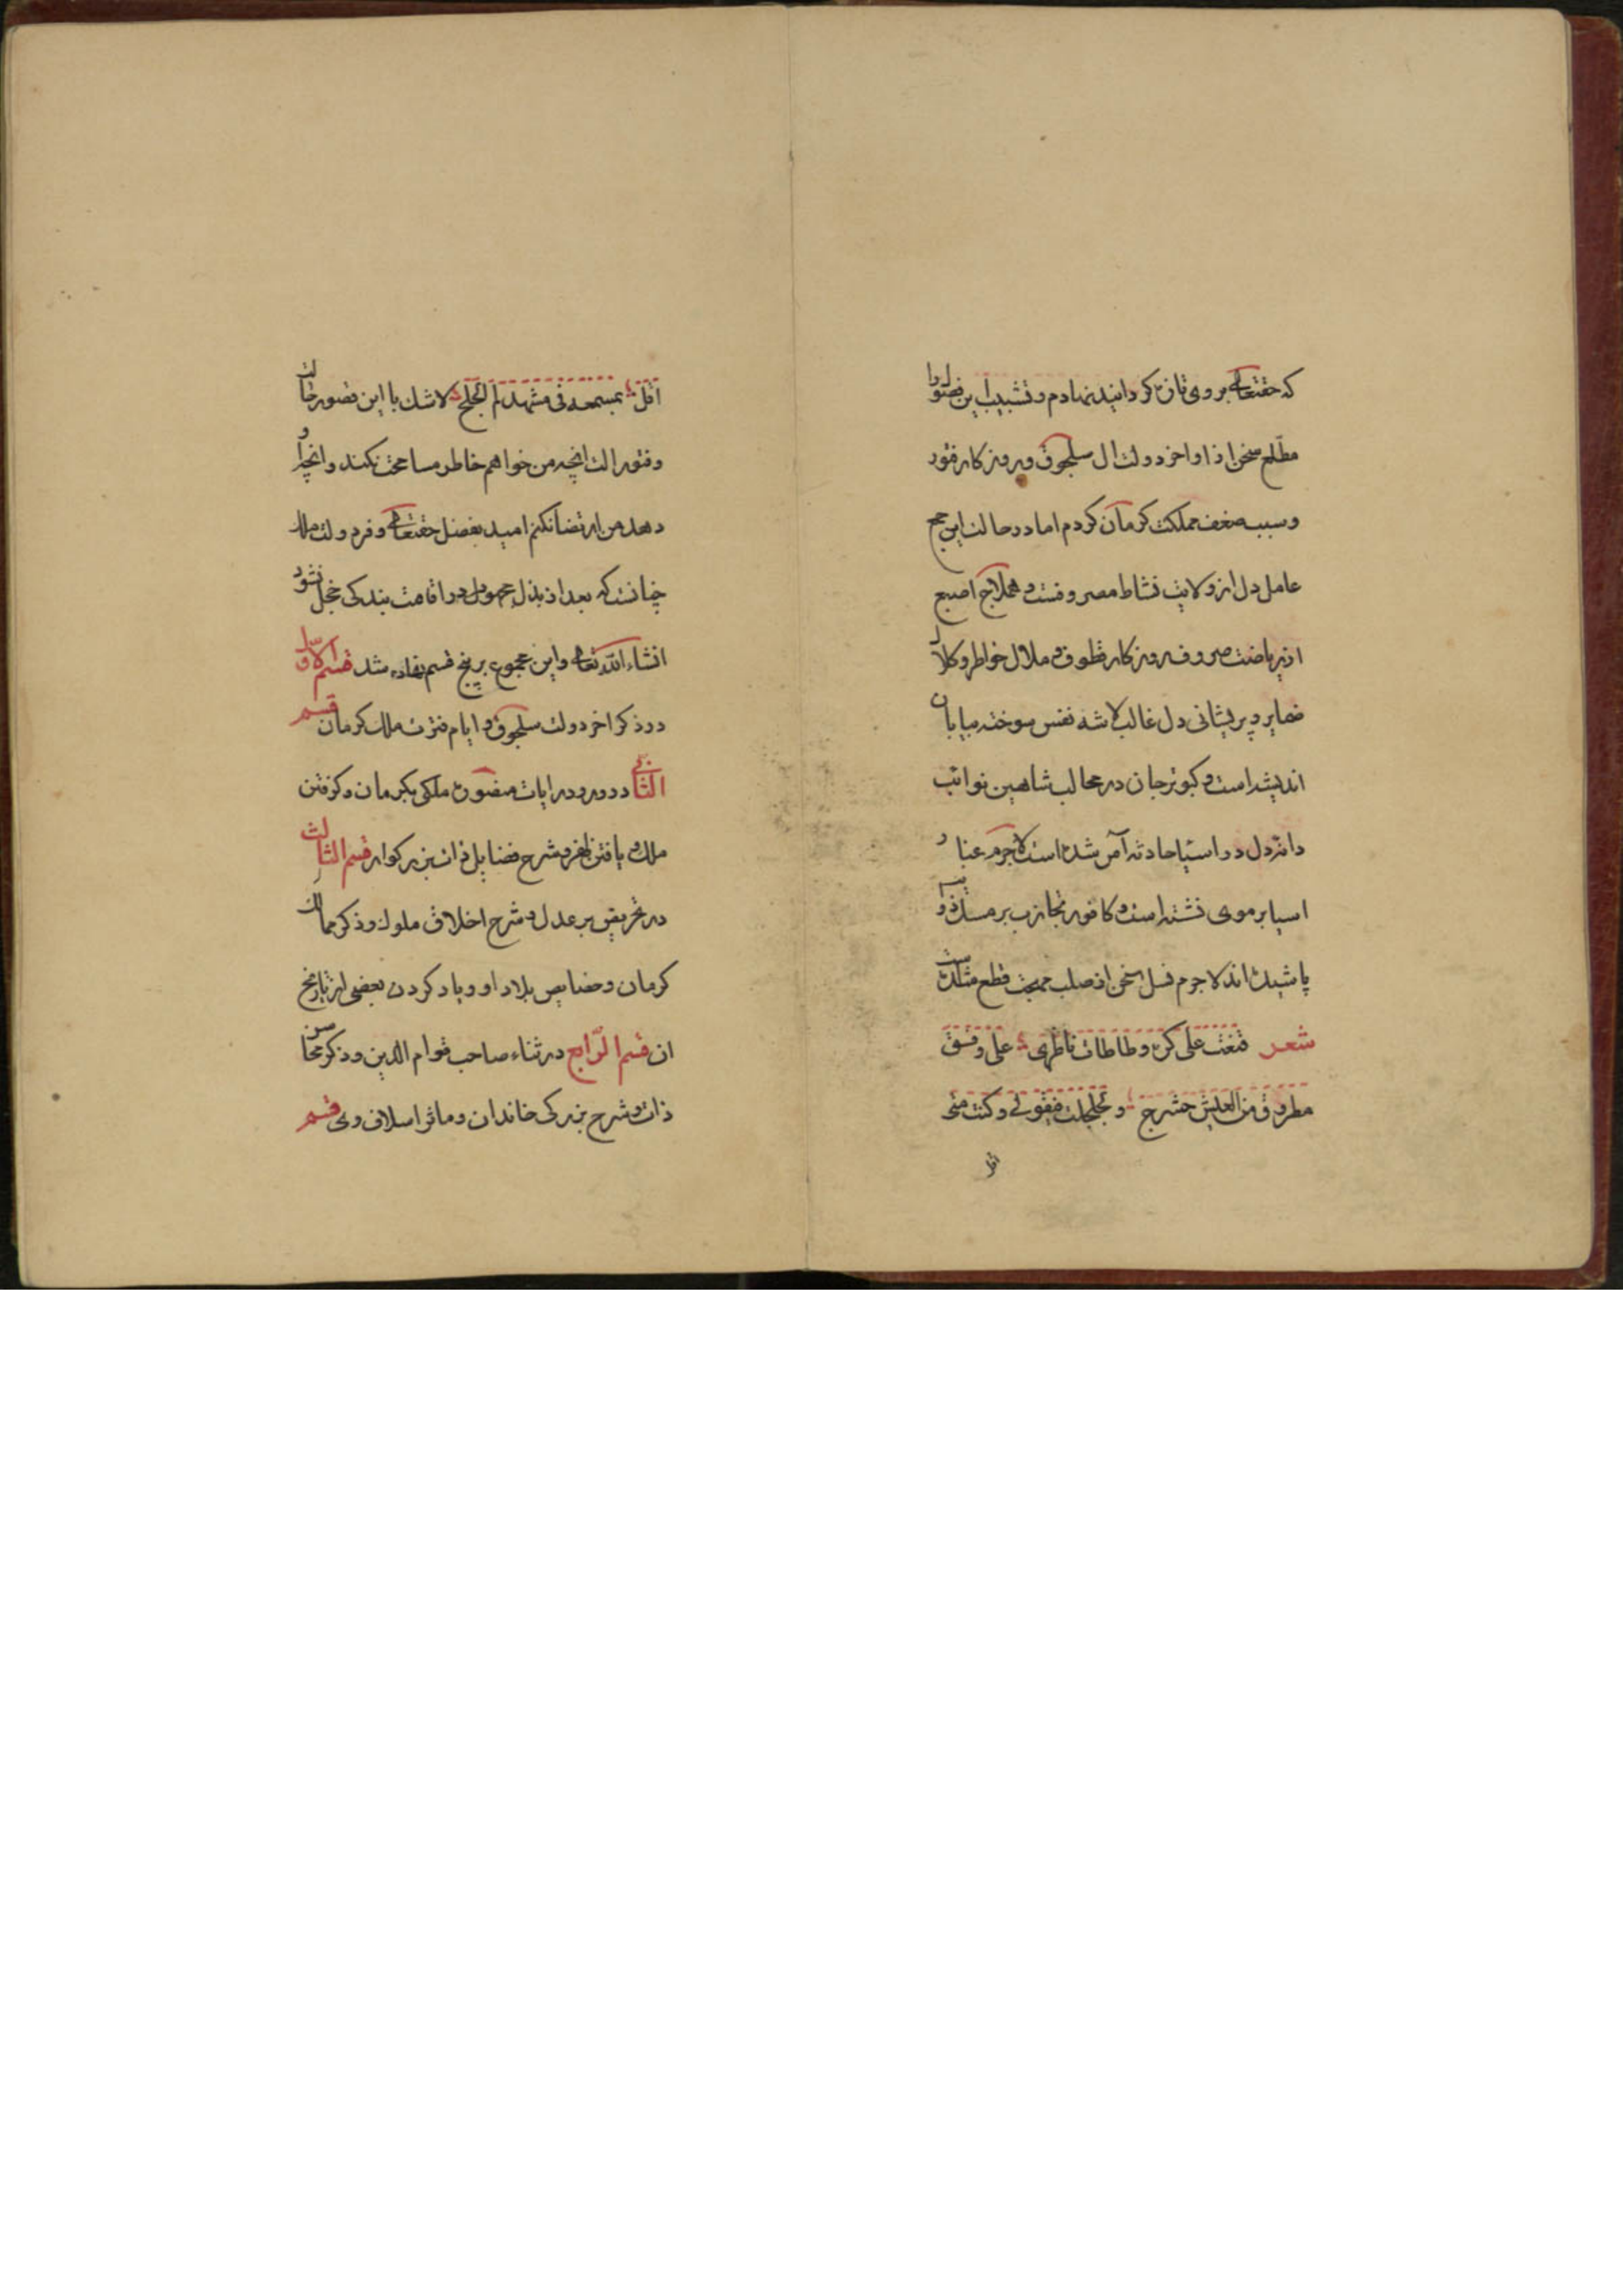 که حقتعالی بروی تازه کردانید نهادم و تشبیب این فصول را
مطلع سخن اذ اواخر دولت ال سلجوق و روزکار فتور
و سبب ضعف مملکت کرمان کردم اما در حالت این جمع
عامل دل از ولایت نشاط مصروفست و هملاج اصبع
اذ ریاضت صروف روزکار قطوف و ملال خواطر و کلال
ضمایر و پریشانی دل غالب لاشه نفس سوخته بیابان
اندیشه است و کبوتر جان در مخالب شاهین نوائب
دانه دل در اسیا حادثه آس شده است لاجرم غبار
اسیا بر موی نشسته است و کافور تجارب بر مسک ذوایب
پاشیده اند لاجرم نسل سخن اذ صلب حمیت قطع شدست
شعر فنغت علی کره و طاطات ناظری علی وفق
مطروق من العیش حشرج و تجلجلت فیقولی وکنت متی
اقل
اقل بمسمعه فی مشهد لم الجلج لاشک با این قصور حالت
و فتور الت انچه من خواهم خاطر مسامحت نکند و انچه او
دهد من ارتضا نکنم امید بفضل حقتعالی و فر دولت ملک
چنانست که بعد اذ بذل مجهود در اقامت بندکی خجل نشود
انشاء الله تعالی و این مجموع بر پنج قسم نهاده شد قسم الاول
در ذکر اخر دولت سلجوق و ایام فترت ملک کرمان قسم
الثانی در ورود رایات منصوره ملکی بکرمان و کرفتن
ملک و یافتن ظفر و شرح فضایل ذات بزرکوار قسم الثالث
در تحریض بر عدل و شرح اخلاق ملوک و ذکر ممالک
کرمان و خصایص بلاد او و یاد کردن بعضی از تاریخ
ان قسم الرابع در ثناء صاحب قوام الدین و ذکر محاسن
ذات و شرح بزرکی خاندان و ماثر اسلاف وی قسم